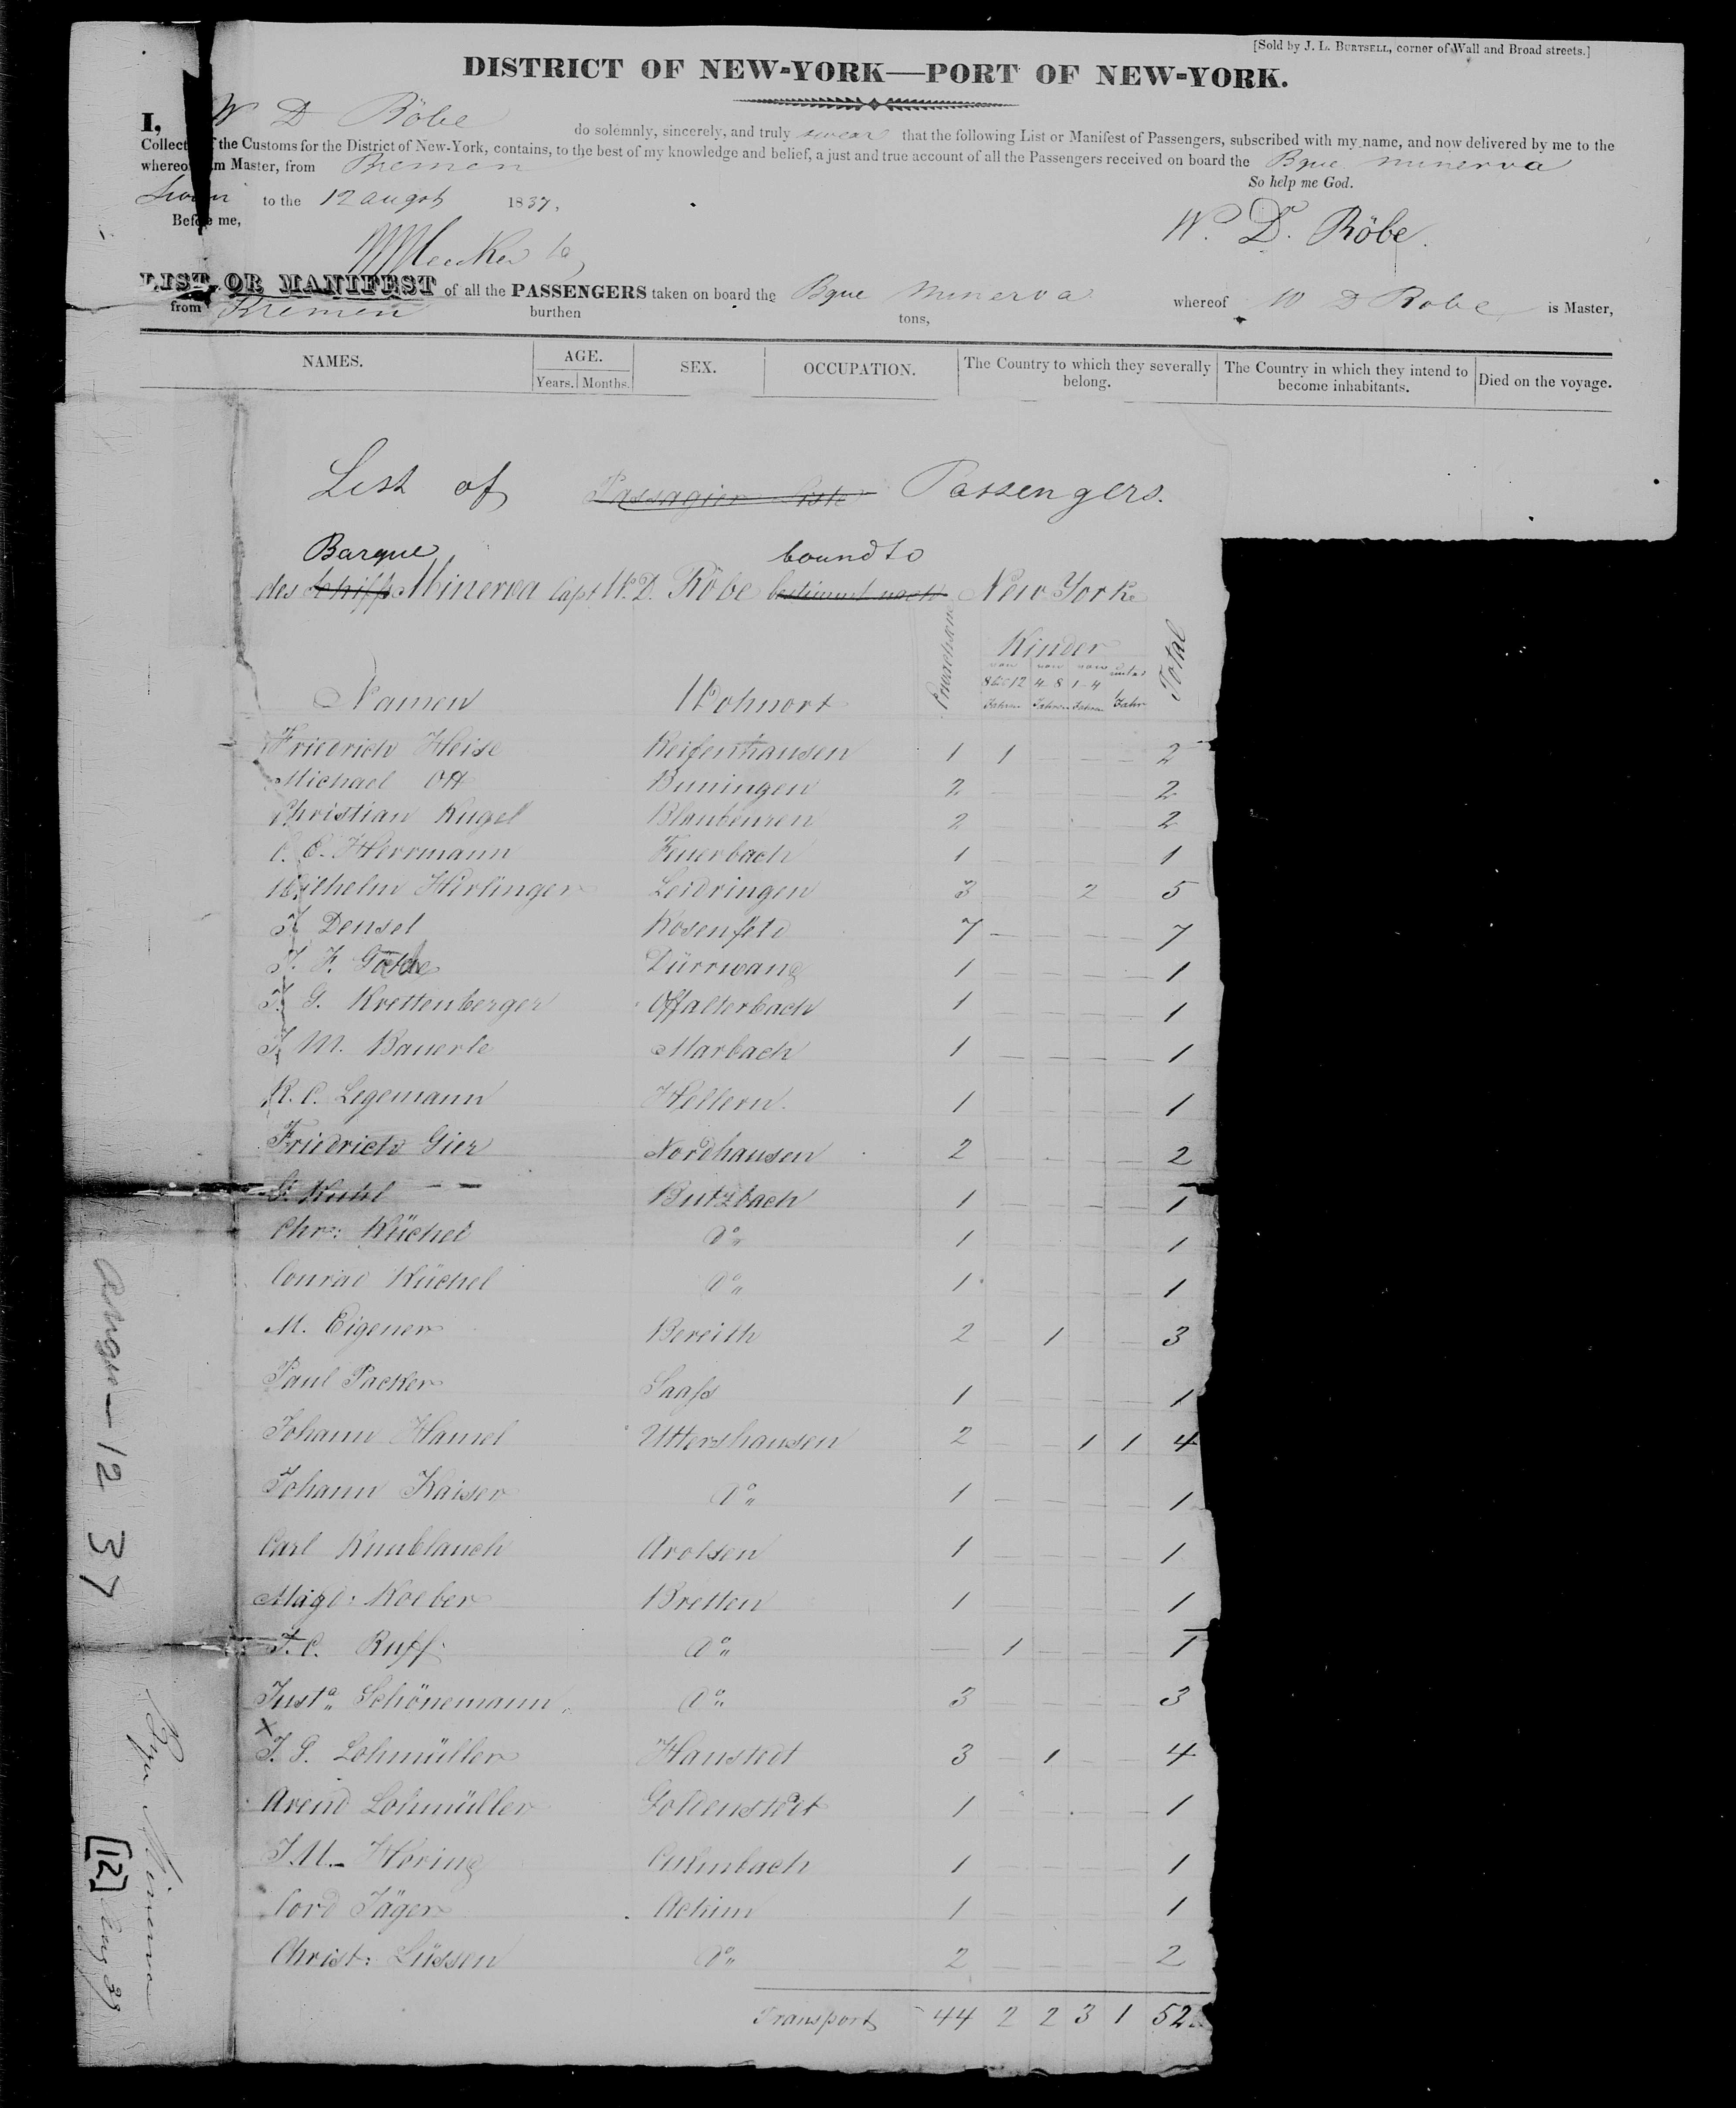 [Sold by J. L. BURTSELL, corner of Wall and Broad streets.]
DISTRICT OF NEW-YORK—PORT OF NEW-YORK.
I, W D Röbe do solemnly, sincerely, and truly swear that the following List or Manifest of Passengers, subscribed with my name, and now delivered by me to the
Collect of the Customs for the District of New-York, contains, to the best of my knowledge and belief, a just and true account of all the Passengers received on board the Bque Minerva
whereof am Master, from Bremen
So help me God.
Sworn to the 12 augst 1837,
Before me,
W. D. Röbe.
LIST OR MANIFEST of all the PASSENGERS taken on board the Bque Minerva whereof W D Robe is Master,
from Bremen burthen tons,
NAMES. AGE. SEX. OCCUPATION. The Country to which they severally belong. The Country in which they intend to become inhabitants. Died on the voyage.
Years. Months.
List of Passagier Liste Passengers.
Barque bound to
des Schiffs Minerva Capt W. D. Röbe bestimmt nach New York
Namen Wohnort Erwachsene Kinder Total
von 8 bis 12 Jahren von 4-8 Jahren von 1-4 Jahren unter 1 Jahr
Friedrich Heise Reifenhausen 1 1 — — — 2
Michael Ott Buningen 2 — — — — 2
Christian Kugel Blaubeuren 2 — — — — 2
C. C. Herrmann Feuerbach 1 — — — — 1
Wilhelm Hirlinger Leidringen 3 — — 2 5
J. Densel Rosenfeld 7 — — — — 7
J. F. Dürrwang 1 — — — — 1
J. G. Krettenberger Affalterbach 1 — — — — 1
J. M. Bauerle Marbach 1 — — — — 1
R. C. Legemann Hellern. 1 — — — — 1
Friedrich Gier Nordhausen 2 — — — — 2
G. Kuhl Butzbach 1 — — — — 1
Chr: Küchel do 1 — — — — 1
Conrad Küchel do 1 — — — — 1
M. Eigener Bereith 2 — 1 — — 3
Paul Packer Saass 1 — — — — 1
Johann Hamel Uttershausen 2 — — 1 1 4
Johann Kaiser do 1 — — — — 1
Carl Knublauch Arolsen 1 — — — — 1
Magd: Koeber Bretten 1 — — — — 1
J. C. Ruff do — 1 — — — 1
Justa Schönemann do 3 — — — — 3
x J. G. Lohmüller Hanstedt 3 — 1 — — 4
Arend Lohmüller Goldenstedt 1 — — — — 1
J. M. Höring Culmbach 1 — — — — 1
Cord Jäger Achim 1 — — — — 1
Christ: Lüssen do 2 — — — — 2
Transport 44 2 2 3 1 52
12 37
Bque Minerva
[12] Aug 39